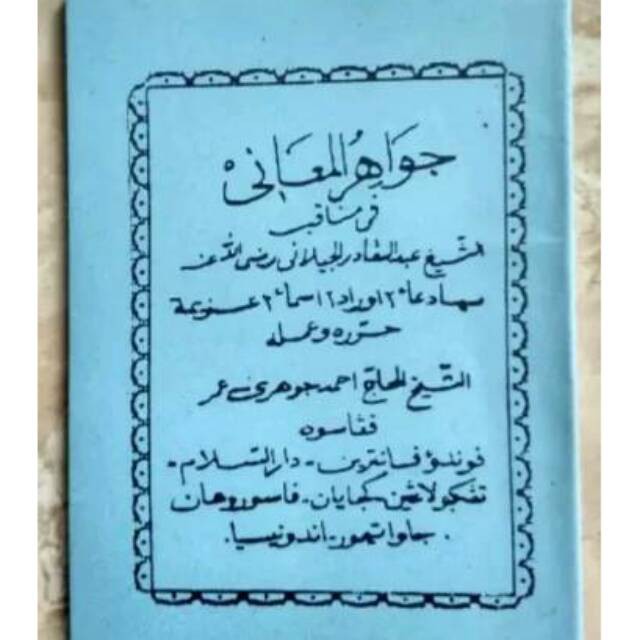 جَوَاهِرُ المَعَانِىْ
فى مناقب
الشّيخ عبد القادر الجيلانى رضى الله عنه
سهادعاء٢ اوراد٢ اسماء٢ عزيمة
حرّره وعمله
الشّيخ الحاجّ احمد جوهرى عمر
فڠاسوه
فوندوق فسانترين - دار السّلام -
تڠݢولاڠين كجايان - فاسوروهان
جاوا تيمور - اندونيسيا .